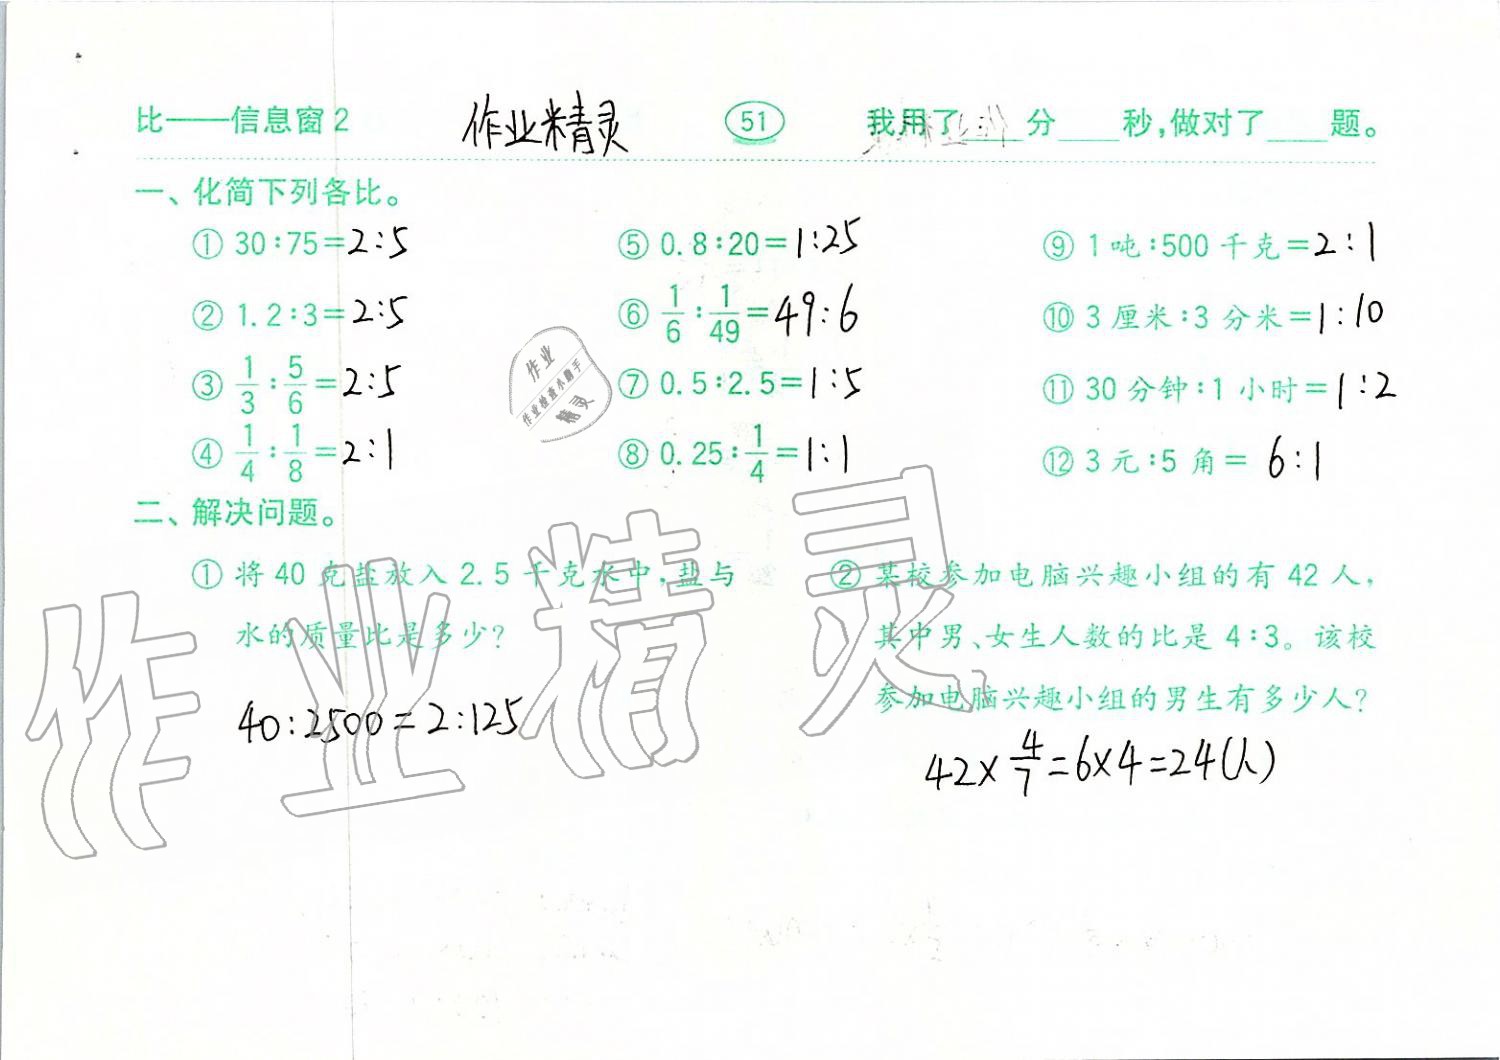 比——信息窗2 作业精灵 51 我用了____分____秒,做对了____题。
一、化简下列各比。
① 30:75=2:5
② 1.2:3=2:5
③ 1/3:5/6=2:5
④ 1/4:1/8=2:1
⑤ 0.8:20=1:25
⑥ 1/6:1/49=49:6
⑦ 0.5:2.5=1:5
⑧ 0.25:1/4=1:1
⑨ 1吨:500千克=2:1
⑩ 3厘米:3分米=1:10
⑪ 30分钟:1小时=1:2
⑫ 3元:5角= 6:1
二、解决问题。
① 将40克盐放入2.5千克水中,盐与
水的质量比是多少?
40:2500=2:125
② 某校参加电脑兴趣小组的有42人,
其中男、女生人数的比是4:3。该校
参加电脑兴趣小组的男生有多少人?
42×4/7=6×4=24(人)
作业
作业检查小助手
精灵
作业精灵